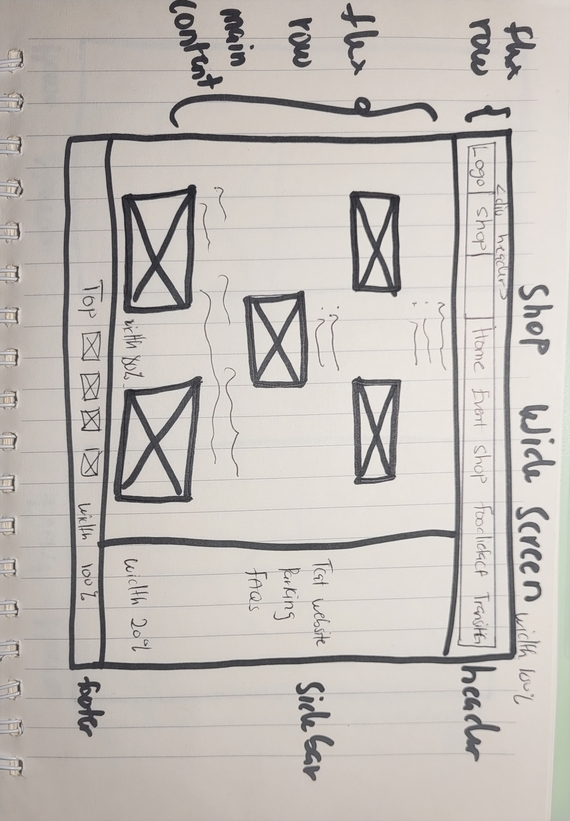 Shop Wide Screen
width 100%
flex
row
<div header>
Logo Shop Home Event Shop
header
flex
row
main
content
Parking
FAQs
Sidebar
width 80%
width 20%
Top width 100%
footer